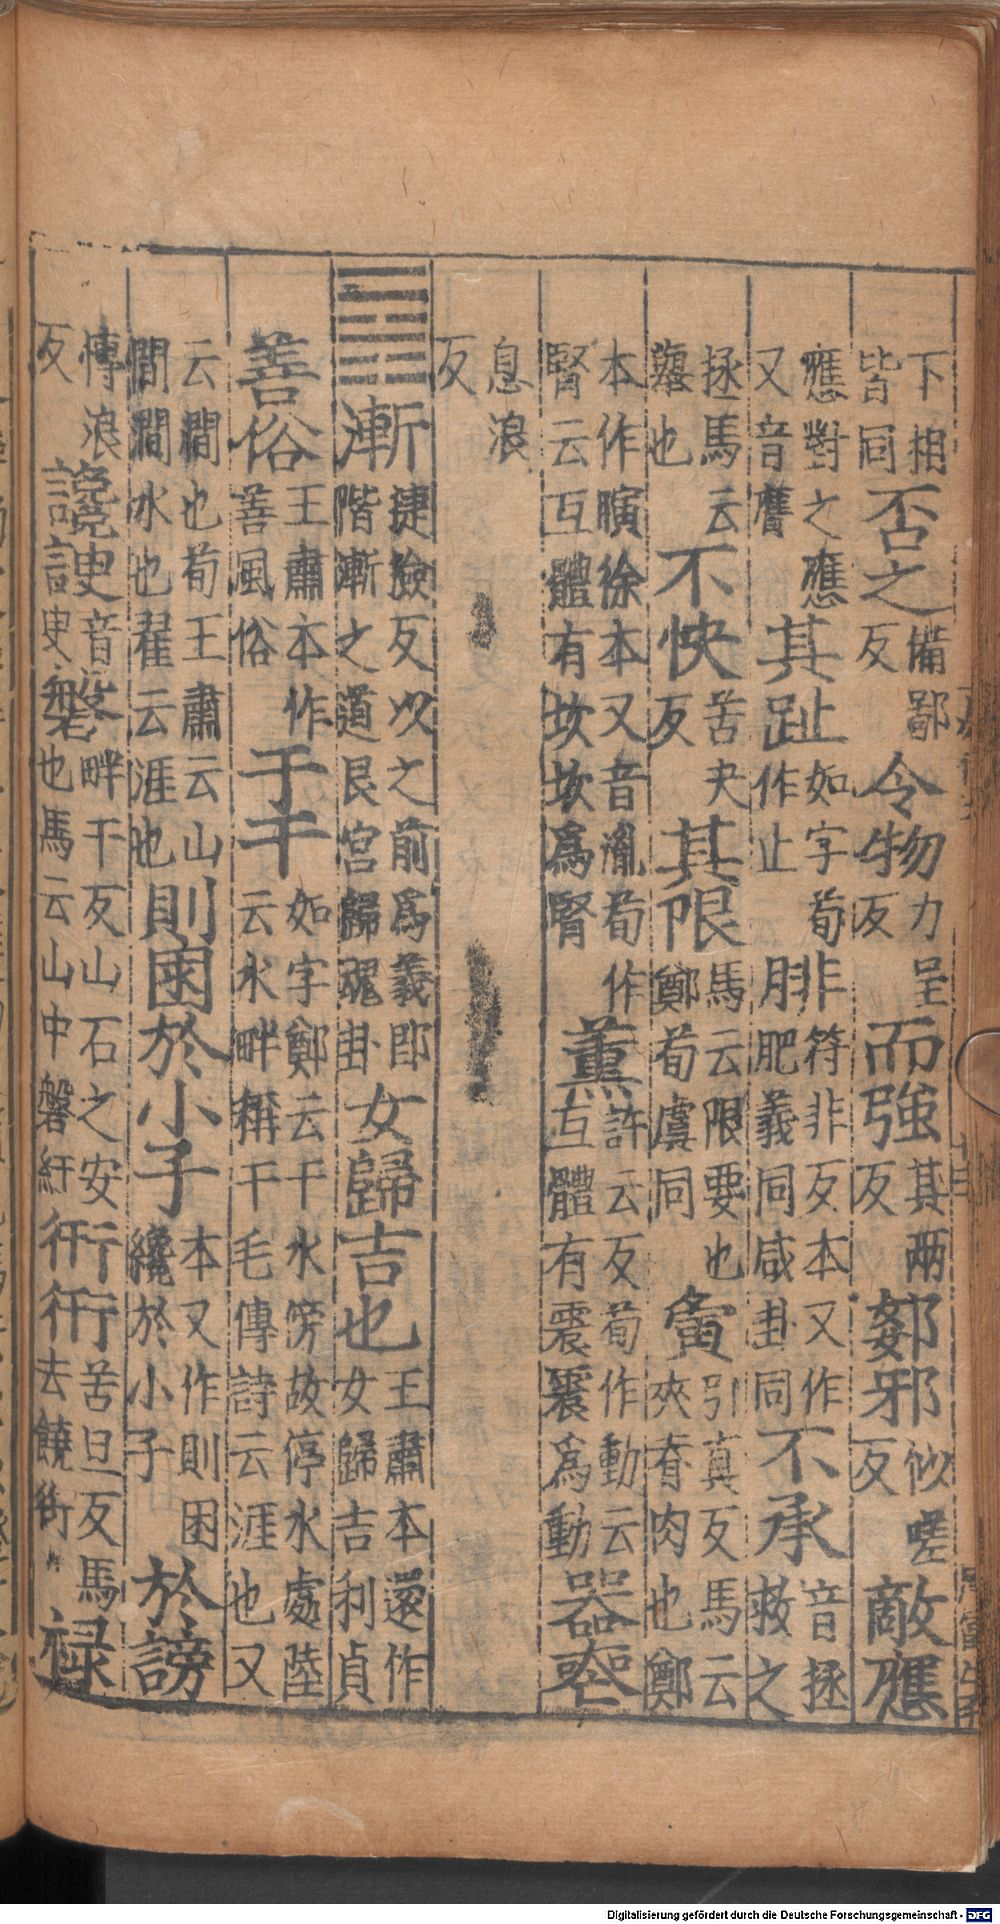 下相皆同否之備鄙反令物力呈反而強其兩反姣邪似嗟反敵應
應對之應又音膺其趾如字荀作止腓符非反本又作肥義同咸卦同不承音拯救之
拯馬云擧也不快苦夬反其限馬云限要也鄭荀虞同夤引真反馬云夾脊肉也鄭
本作䐄徐本又音胤荀作腎云互體有坎坎為腎薰許云反荀作動云互體有震震為動噐喪
息浪反
䷴漸捷險反以之前為義即階漸之道艮宮歸魂卦女歸吉也王肅本還作女歸吉利貞
善俗王肅本作善風俗于干如字鄭云干水傍故停水處陸云水畔稱干毛傳詩云涯也又
云澗也荀王肅云山間澗水也翟云涯也則困於小子本又作則困讒於小子於謗
博浪反讒諛音臾磐畔干反山石之安也馬云山中磐紆衎衎苦旦反馬云饒衍祿
Digitalisierung gefördert durch die Deutsche Forschungsgemeinschaft - DFG